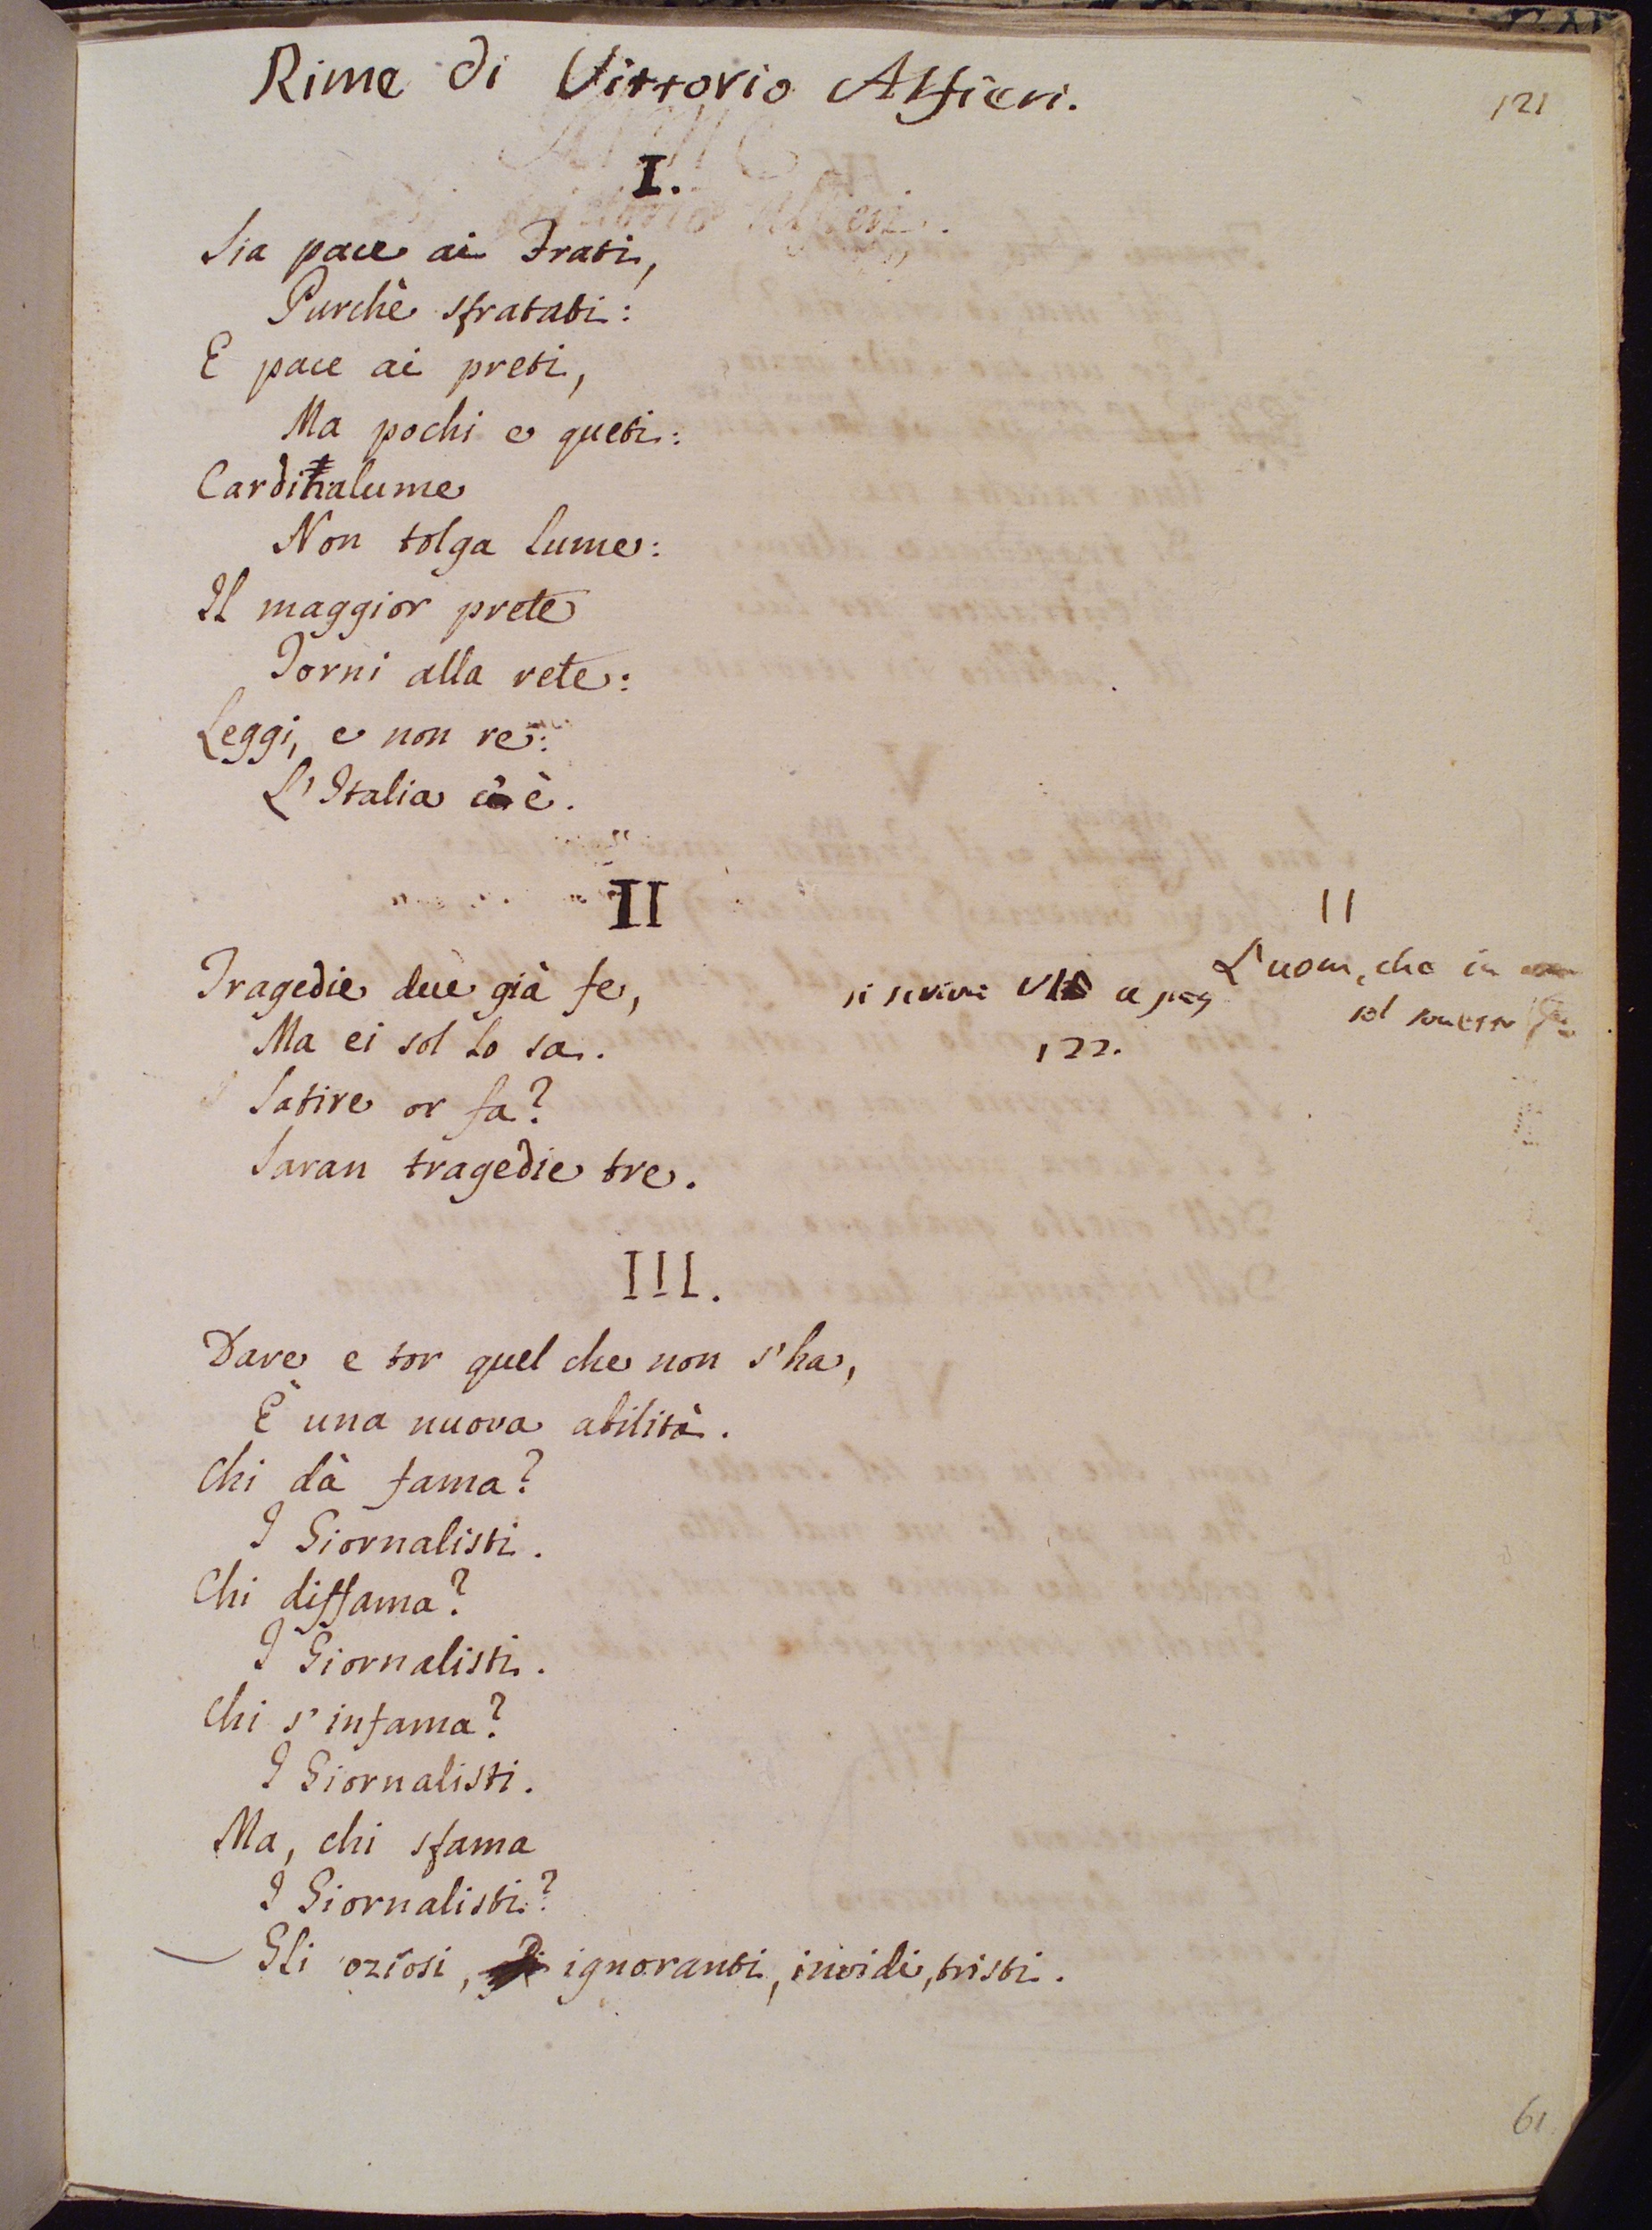 Rime di Vittorio Alfieri.
121
I.
Sia pace ai Frati,
Purchè sfratati:
E pace ai preti,
Ma pochi e queti:
Cardinalume
Non tolga lume:
Il maggior prete
Torni alla rete:
Leggi, e non re:
L'Italia c'è.
II
Tragedie due già fe,
Ma ei sol lo sa.
Satire or fa?
Saran tragedie tre.
si scrive a pag
122.
II
L'uom, che in
sol sonetto
III.
Dare e tor quel che non s'ha,
È una nuova abilità.
Chi dà fama?
I Giornalisti.
Chi diffama?
I Giornalisti.
Chi s'infama?
I Giornalisti.
Ma, chi sfama
I Giornalisti?
Gli oziosi, ignoranti, invidi, tristi.
61